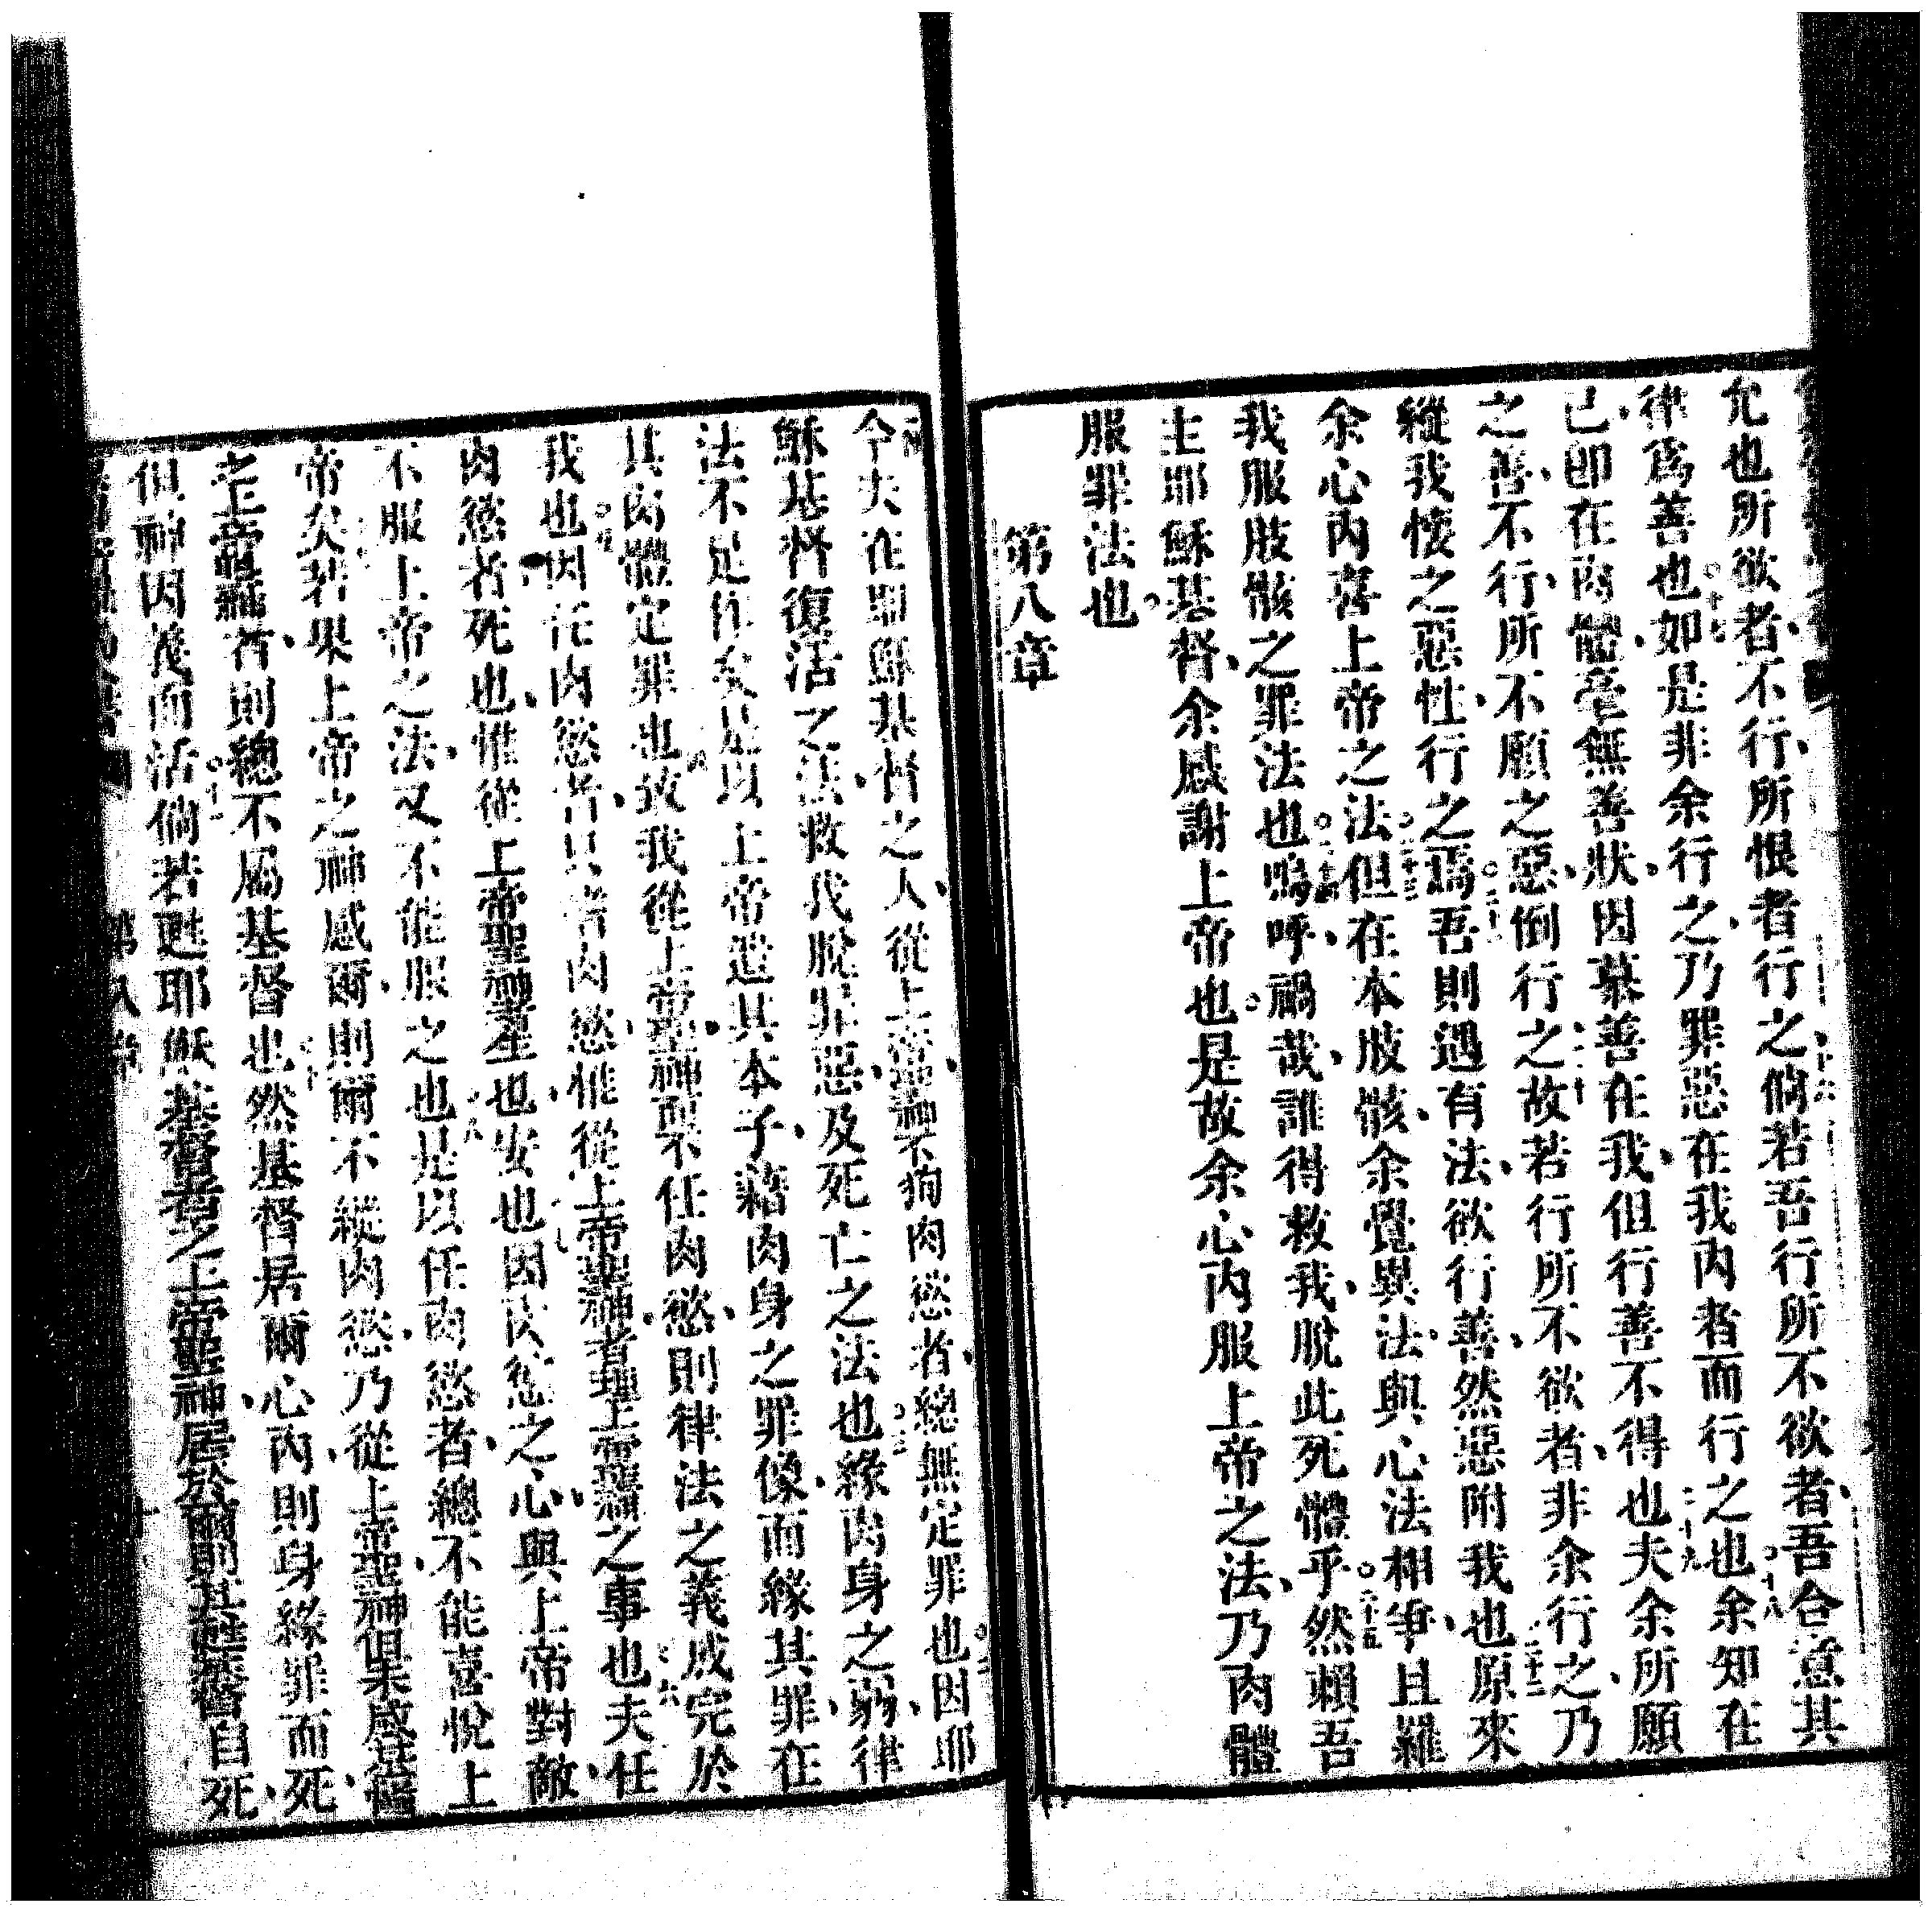 允也所欲者、不行、所恨者行之、倘若吾行所不欲者、吾合意其
律爲善也。十七如是非余行之、乃罪惡在我內者而行之也。十八余知在
己、卽在肉體、毫無善狀、因慕善在我、但行善不得也。十九夫余所願
之善、不行、所不願之惡、倒行之。二十故若行所不欲者、非余行之、乃
縱我悛之惡性、行之焉。二十一吾則遇有法、欲行善、然惡附我也。二十二原來
余心內喜上帝之法。二十三但在本肢骸、余覺異法、與心法相爭、且羅
我服肢骸之罪法也。二十四嗚呼、禍哉、誰得救我、脫此死體乎。二十五然賴吾
主耶穌基督、余感謝上帝也。是故余心內服上帝之法、乃肉體
服罪法也。
第八章
今夫在耶穌基督之人、從上帝聖神、不狥肉慾者、總無定罪也。二因耶
穌基督復活之法、救我脫罪惡、及死亡之法也。三緣肉身之弱、律
法不足作矣、是以上帝遣其本子、藉肉身之罪像、而緣其罪、在
其肉體定罪也。四致我從上帝聖神、不任肉慾、則律法之義成完於
我也。五因任肉慾者、只者肉慾、惟從上帝聖神者、上帝聖神之事也。六夫任
肉慾者、死也、惟從上帝聖神者、生也、安也。七因肉慾之心、與上帝對敵、
不服上帝之法、又不能服之也。八是以任肉慾者、總不能喜悅上
帝矣。九若果上帝之神感爾、則爾不縱肉慾、乃從上帝聖神、
者、則總不屬基督也。十然基督居爾心內、則身緣罪而死、
但神因義而活。十一倘若甦耶穌基督者之上帝聖神、居於爾、則甦基督自死
第八章